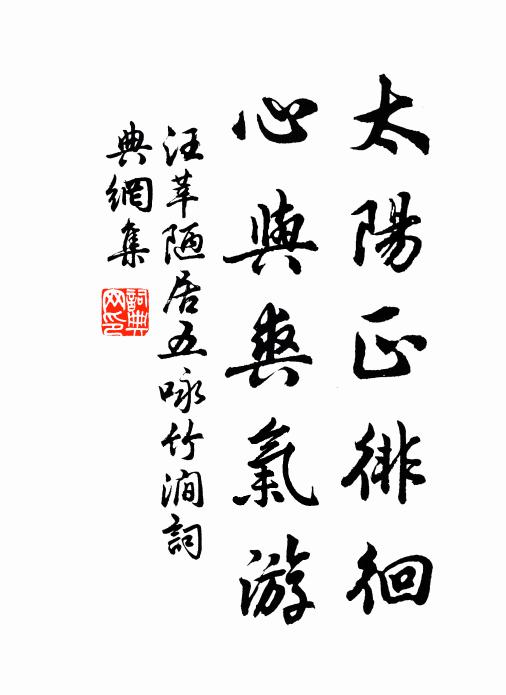 太陽正徘徊
心與爽氣游
汪莘陋居五咏竹澗詞
典網集
詞典
网印